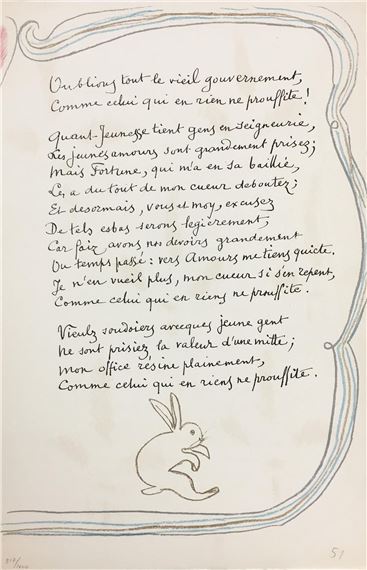 Oublions tout le vieil gouvernement,
Comme celui qui en rien ne prouffite!
Quant Jeunesse tient gens en seigneurie,
Les jeunes amours sont grandement prisez;
Mais Fortune, qui m'a en sa baillie,
Les a du tout de mon cueur deboutez;
Et desormais, vous et moy, excusez
De tels esbas serons legièrement,
Car faiz avons nos devoirs grandement
Ou temps passé: vers Amours me tiens quicte.
Je n'en vueil plus, mon cueur si s'en repent,
Comme celui qui en riens ne prouffite.
Vieulz soudoiers avecques jeune gent
Ne sont prisiez la valeur d'une mitte;
Mon office résine plainement,
Comme celui qui en riens ne prouffite.
51